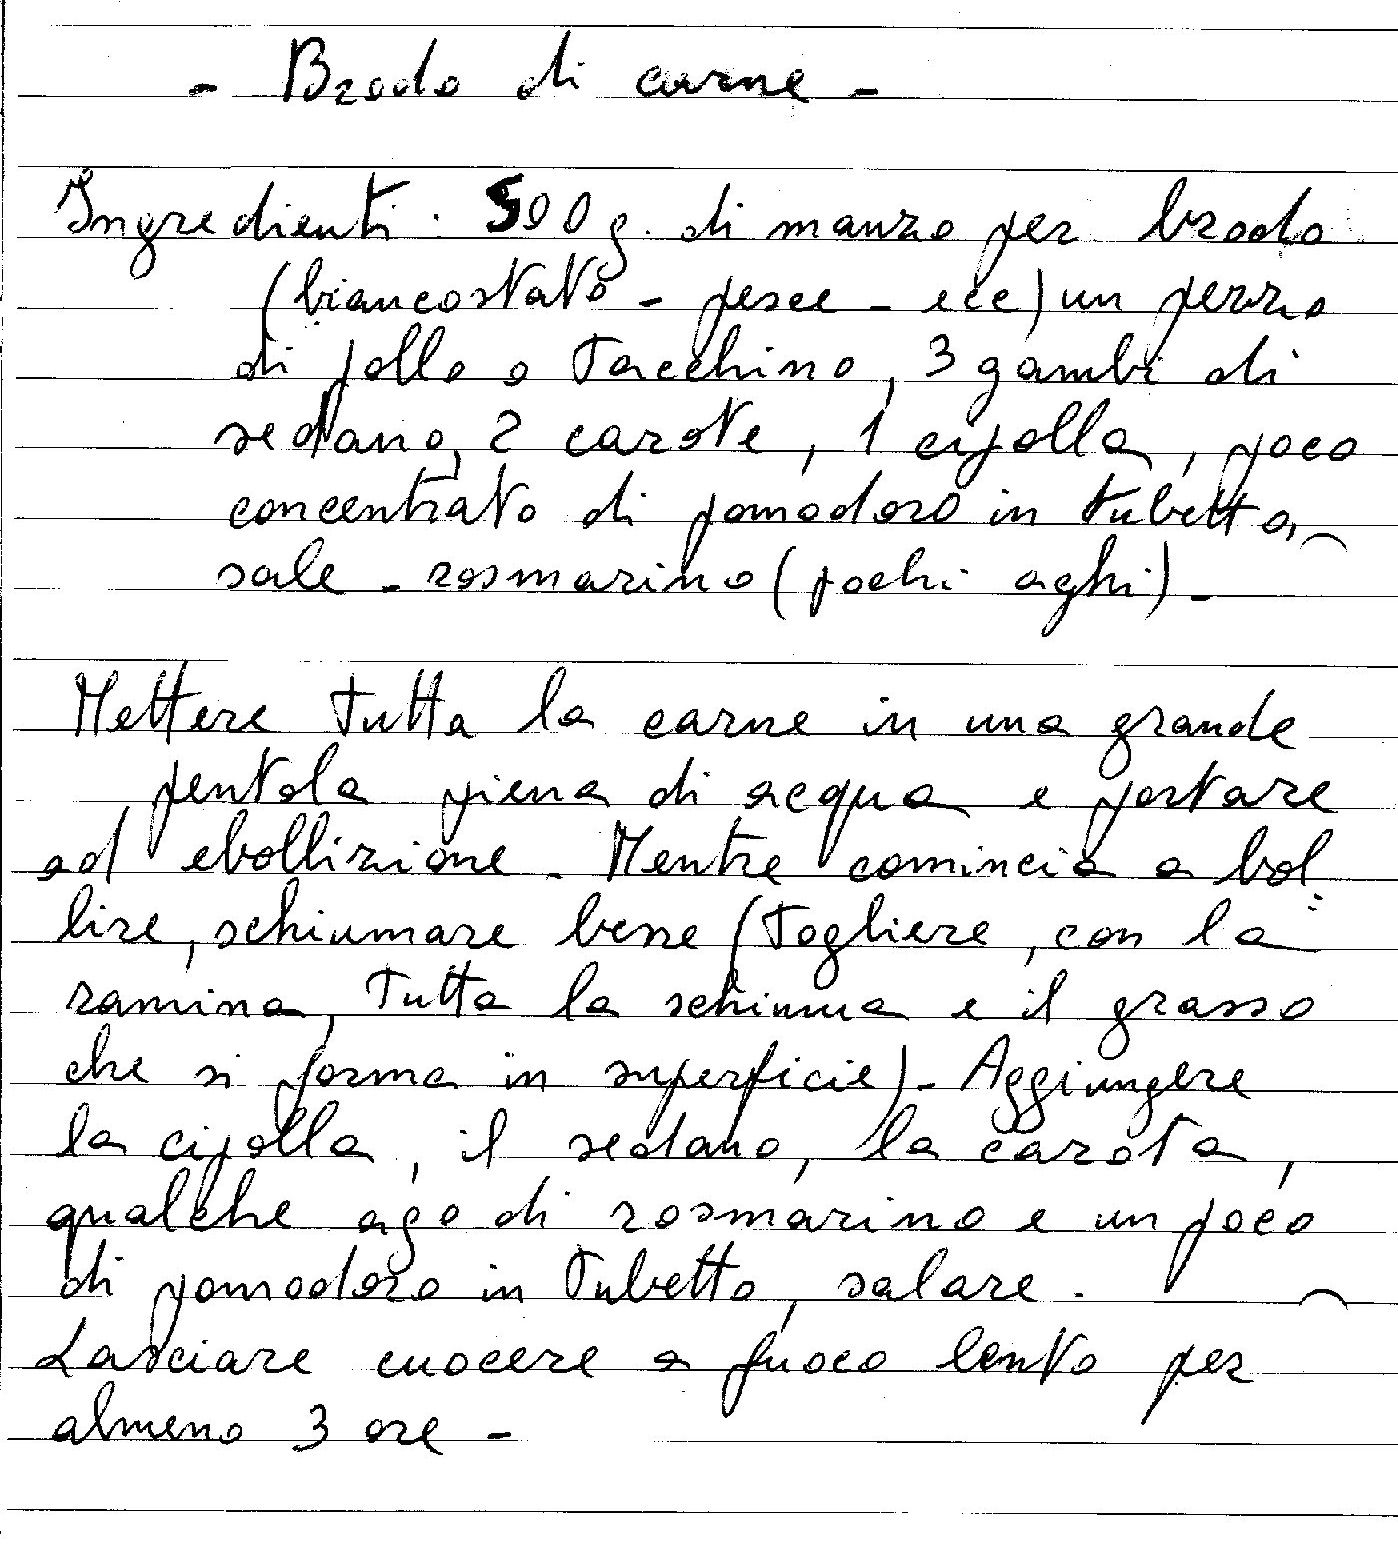 - Brodo di carne -
Ingredienti: 500 g. di manzo per brodo
(biancostato - pesce - ecc) un pezzo
di pollo o tacchino, 3 gambi di
sedano, 2 carote, 1 cipolla, poco
concentrato di pomodoro in tubetto,
sale - rosmarino (pochi aghi) -
Mettere tutta la carne in una grande
pentola piena di acqua e portare
ad ebollizione - Mentre comincia a bol=
lire, schiumare bene (togliere, con la
ramina, tutta la schiuma e il grasso
che si forma in superficie) - Aggiungere
la cipolla, il sedano, la carota,
qualche ago di rosmarino e un poco
di pomodoro in tubetto, salare.
Lasciare cuocere a fuoco lento per
almeno 3 ore -